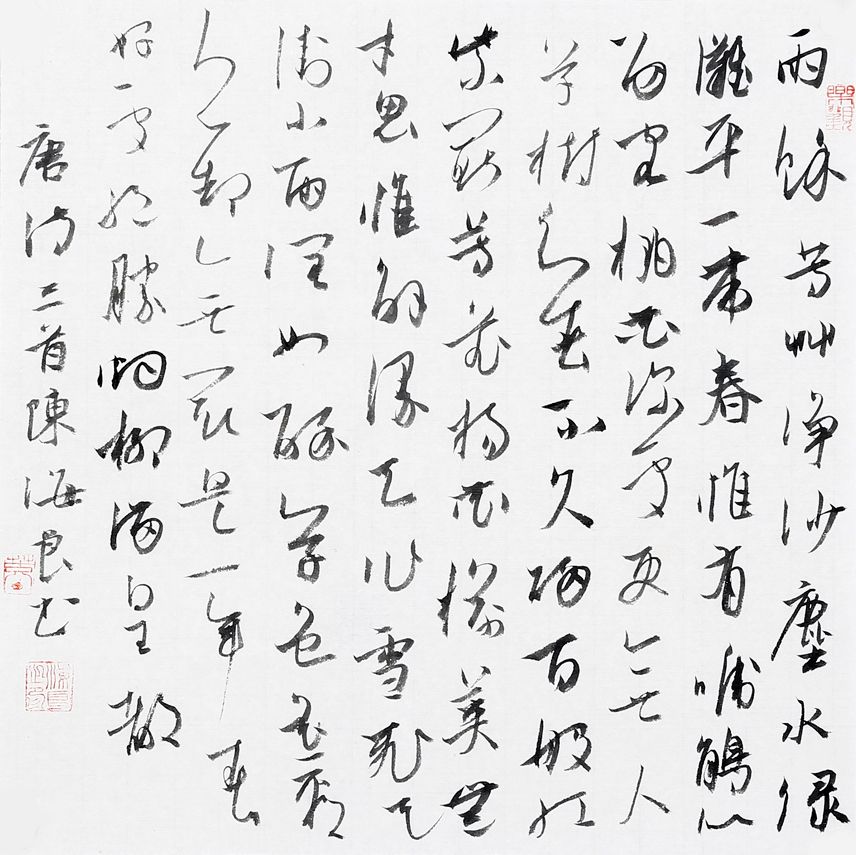 雨餘芳艸净沙塵水绿
灘平一帶春惟有啼鵑似
留客桃花深處更無人
草樹知春不久归百般红
紫鬥芳菲杨花榆荚無
才思惟解漫天作雪飛天
街小雨潤如酥草色遥看
近却無最是一年春
好處绝勝烟柳满皇都
唐诗三首陳海良书